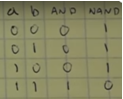 a b AND NAND
0 0 0 1
0 1 0 1
1 0 0 1
1 1 1 0